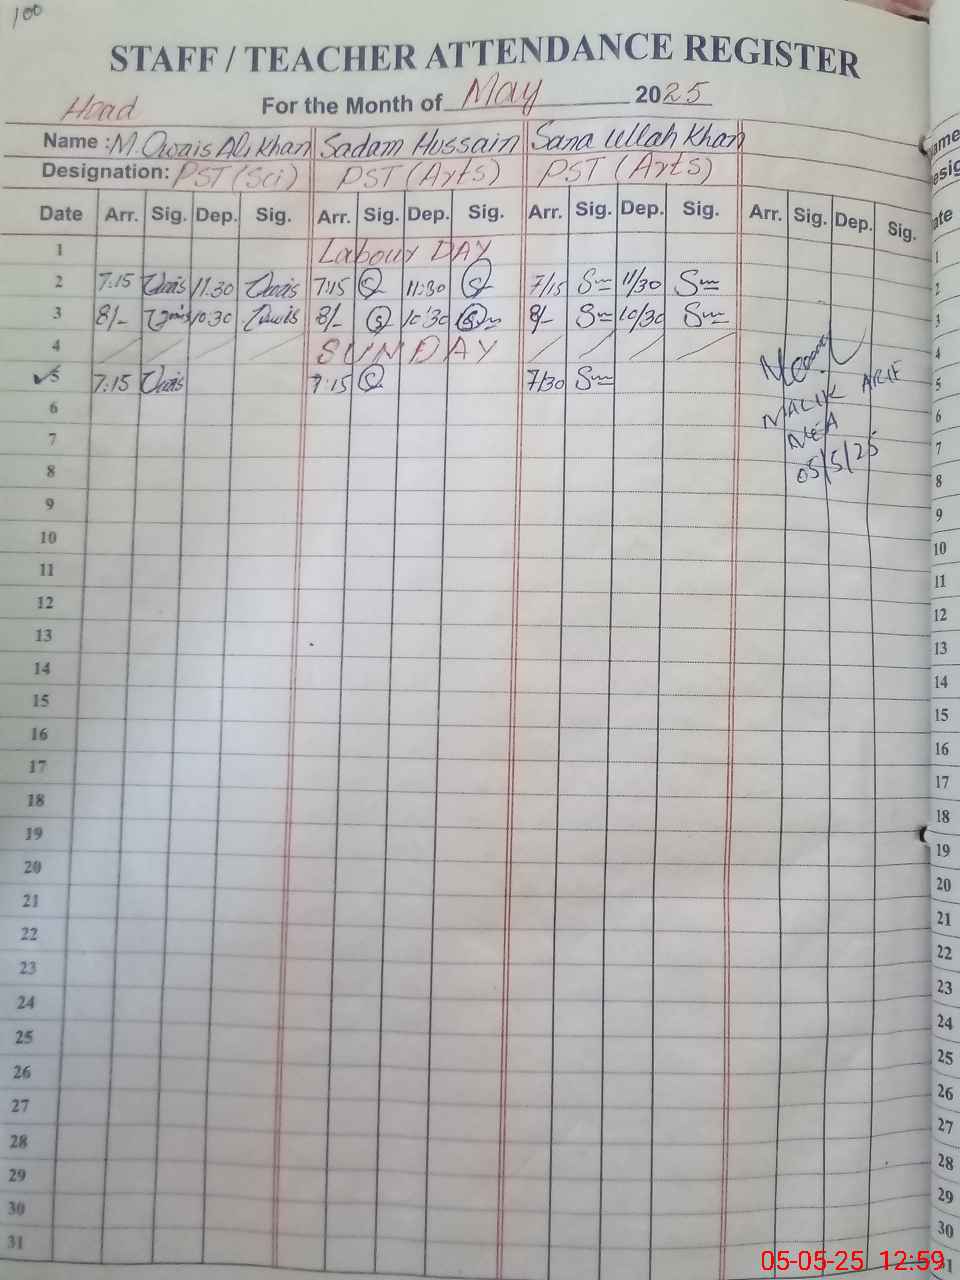 100
STAFF / TEACHER ATTENDANCE REGISTER
Head For the Month of May 2025
Name : M. Owais Ali Khan Sadam Hussain Sana Ullah Khan
Designation: PST (Sci) PST (Arts) PST (Arts)
Date Arr. Sig. Dep. Sig. Arr. Sig. Dep. Sig. Arr. Sig. Dep. Sig. Arr. Sig. Dep. Sig.
1 Labour DAY
2 7:15 Owais 11:30 Owais 7:15 S 11:30 S 7/15 11/30
3 8/- Owais 10:30 Owais 8/- S 10:30 S 8/- 10/30
4 SUNDAY
5 7:15 Owais 7:15 S 7/30
MALIK ARIF
MEA
05/5/25
6
7
8
9
10
11
12
13
14
15
16
17
18
19
20
21
22
23
24
25
26
27
28
29
30
31
ame
esig
ate
1
2
3
4
5
6
7
8
9
10
11
12
13
14
15
16
17
18
19
20
21
22
23
24
25
26
27
28
29
30
05-05-25 12:59